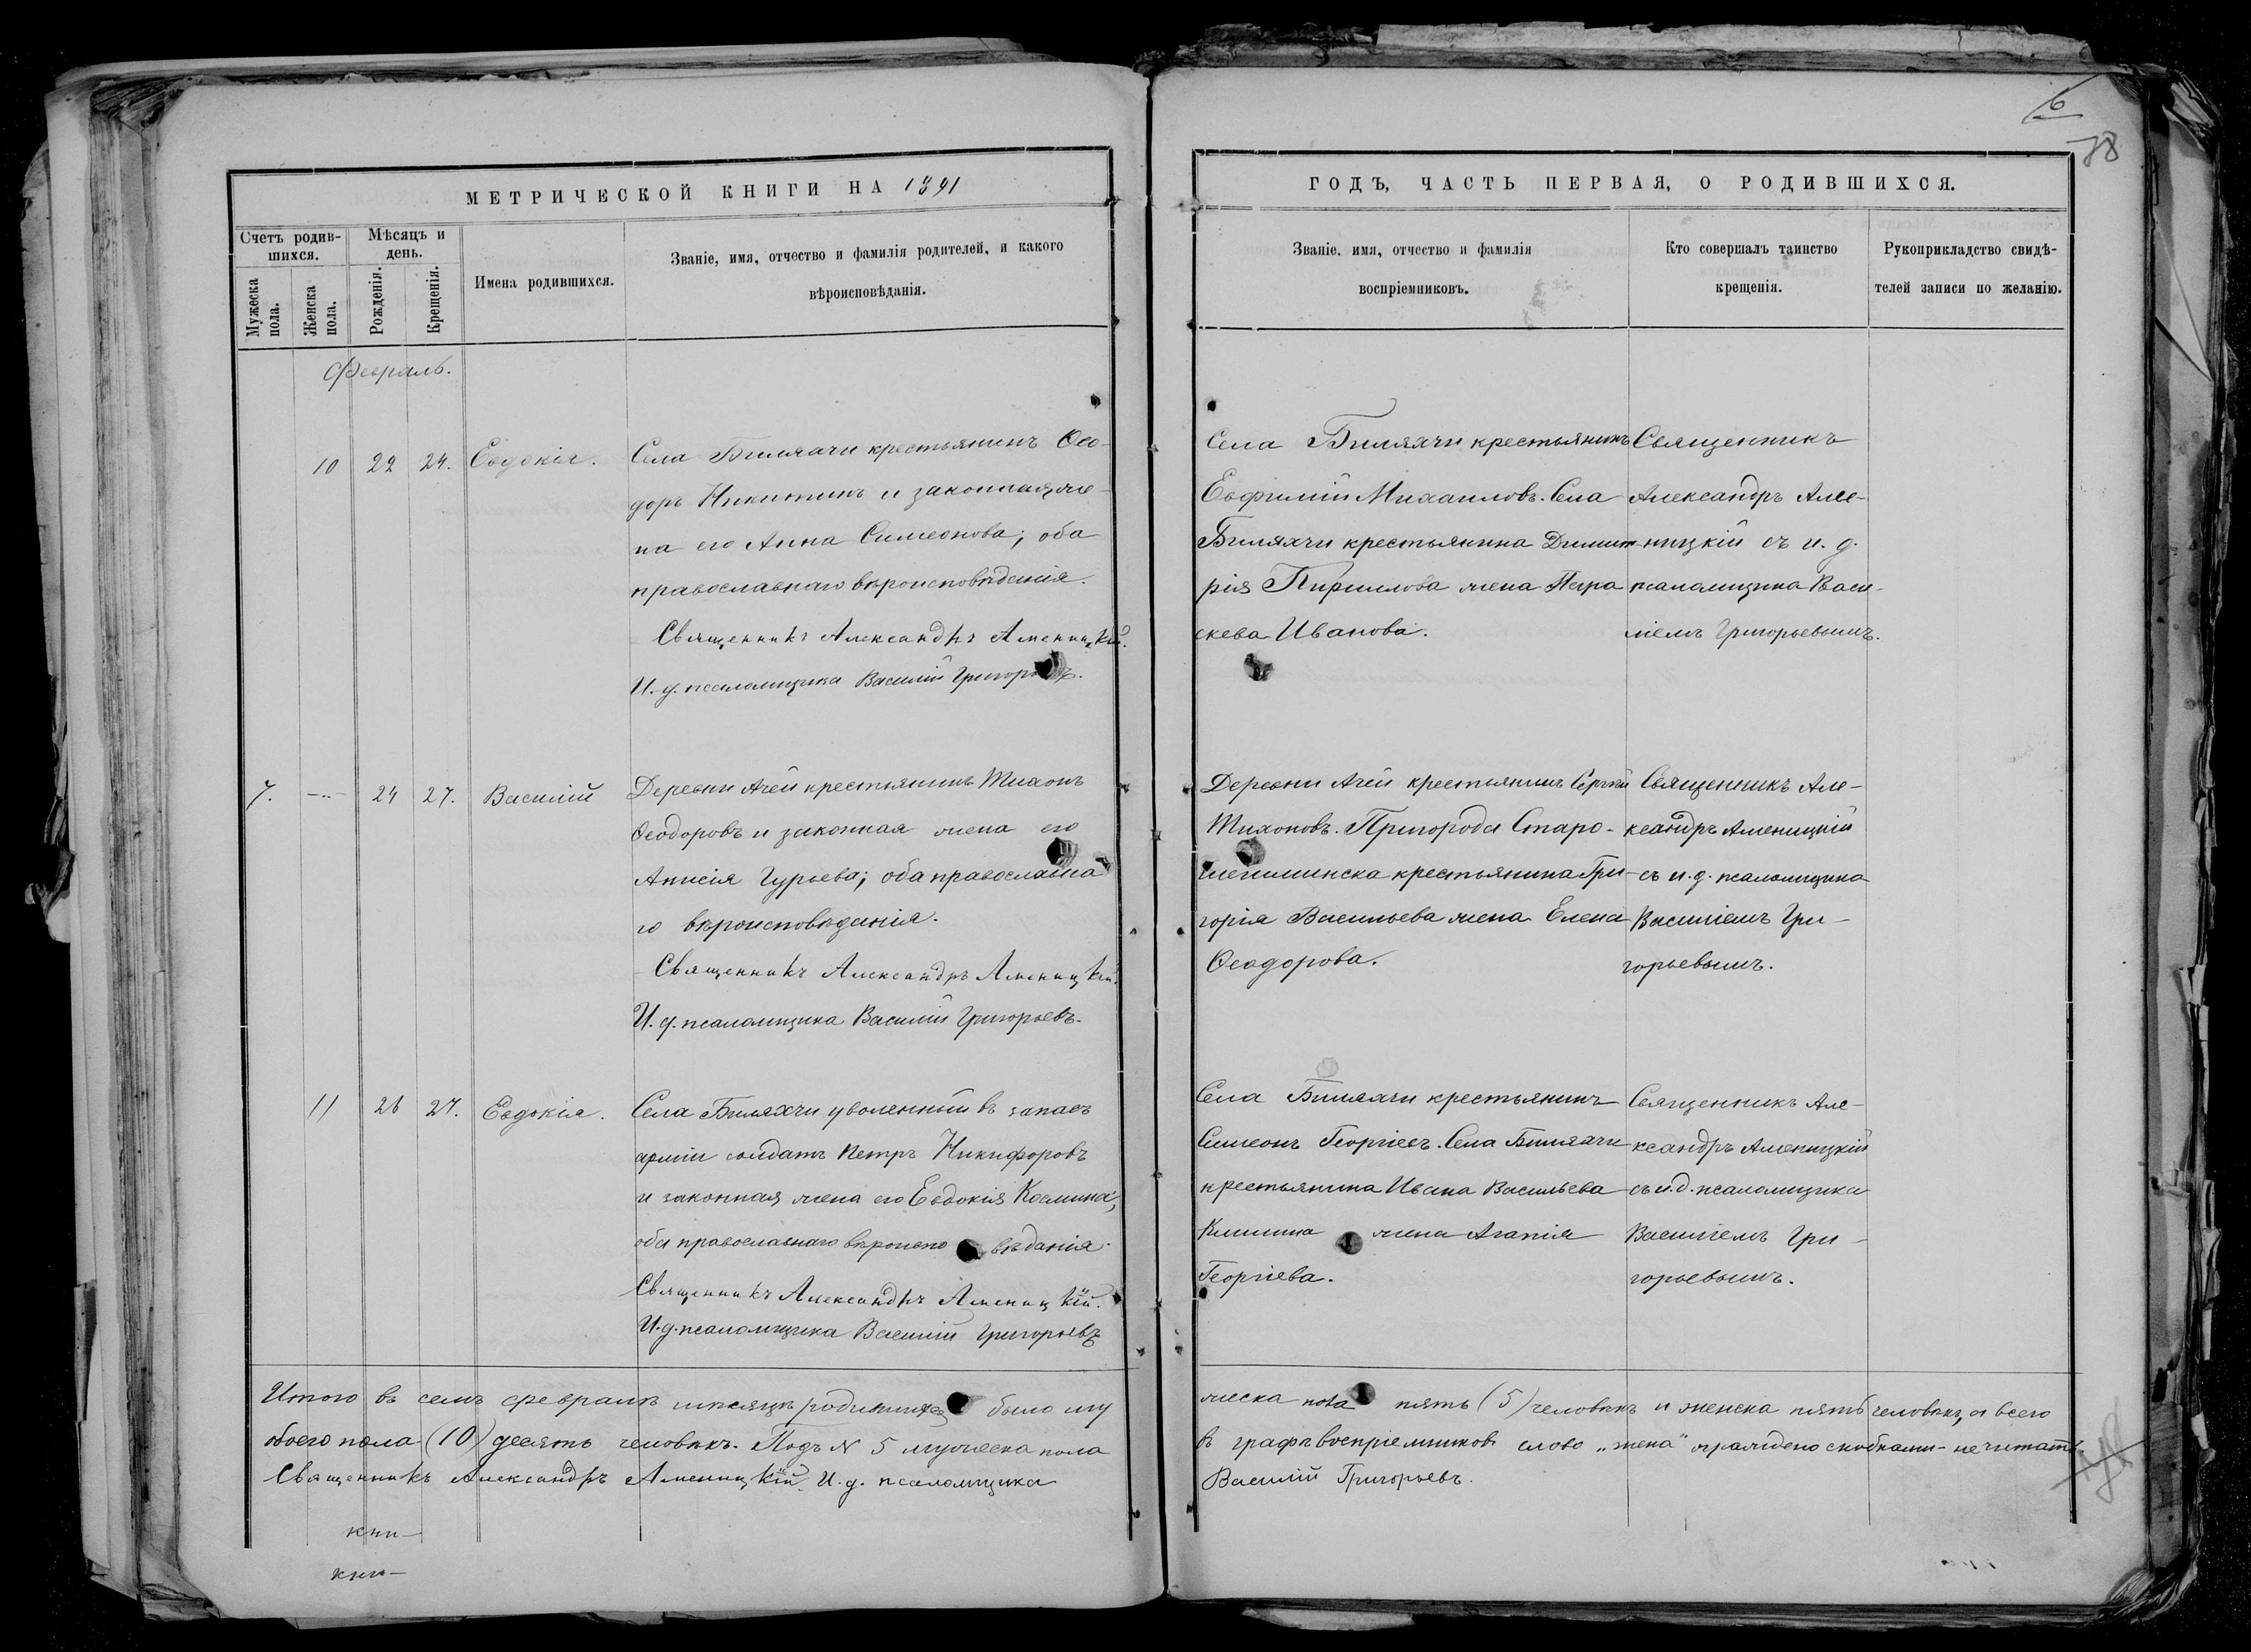 МЕТРИЧЕСКОЙ КНИГИ НА 1891
Счетъ родив-
шихся.
Мѣсяцъ и
день.
Мужеска
пола.
Женска
пола.
Рожденія.
Крещенія.
Имена родившихся.
Званіе, имя, отчество и фамилія родителей, и какого
вѣроисповѣданія.
Февраль.
10 22 24. Евдокія.
Села Билярчи крестьянинъ Ѳео-
доръ Никитинъ и законная же-
на его Анна Симеонова; оба
православнаго вѣроисповѣданія.
Священникъ Александръ Аменицкій.
И. д. псаломщика Василій Григорьевъ.
7. — 24 27. Василій
Деревни Ачей крестьянинъ Тихонъ
Ѳеодоровъ и законная жена его
Анисія Гурьева; оба православна
го вѣроисповѣданія.
Священникъ Александръ Аменицкій.
И. д. псаломщика Василій Григорьевъ.
11 26 27. Евдокія.
Села Билярчи уволенный въ запасъ
арміи солдатъ Петръ Никифоровъ
и законная жена его Евдокія Космина;
оба православнаго вѣроиспо вѣданія.
Священникъ Александръ Аменицкій.
И. д. псаломщика Василій Григорьевъ
Итого въ семъ февралѣ мѣсяцѣ родившихся было му
обоего пола (10) десять человѣкъ. Подъ № 5 мужеска пола
Священникъ Александръ Аменицкій. И. д. псаломщика
кни-
кни-
6
78
ГОДЪ, ЧАСТЬ ПЕРВАЯ, О РОДИВШИХСЯ.
Званіе, имя, отчество и фамилія
воспріемниковъ.
Кто совершалъ таинство
крещенія.
Рукоприкладство свидѣ-
телей записи по желанію.
Села Билярчи крестьянинъ
Евфимій Михаиловъ. Села
Билярчи крестьянина Димит
рія Кириллова жена Пара
скева Иванова.
Священникъ
Александръ Аме-
ницкій съ и. д.
псаломщика Васи-
ліемъ Григорьевымъ.
Деревни Ачей крестьянинъ Сергій
Тихоновъ. Пригорода Старо-
шешминска крестьянина Гри-
горія Васильева жена Елена
Ѳеодорова.
Священникъ Але-
ксандръ Аменицкій
съ и. д. псаломщика
Василіемъ Гри-
горьевымъ.
Села Билярчи крестьянинъ
Симеонъ Георгіевъ. Села Билярчи
крестьянина Ивана Васильева
жена Агапія
Георгіева.
Священникъ Але-
ксандръ Аменицкій
съ и. д. псаломщика
Василіемъ Гри-
горьевымъ.
жеска пола пять (5) человѣкъ и женска пять человѣкъ, а всего
въ графѣ воспріемниковъ слово „жена" ограждено скобками - не читать.
Василій Григорьевъ.